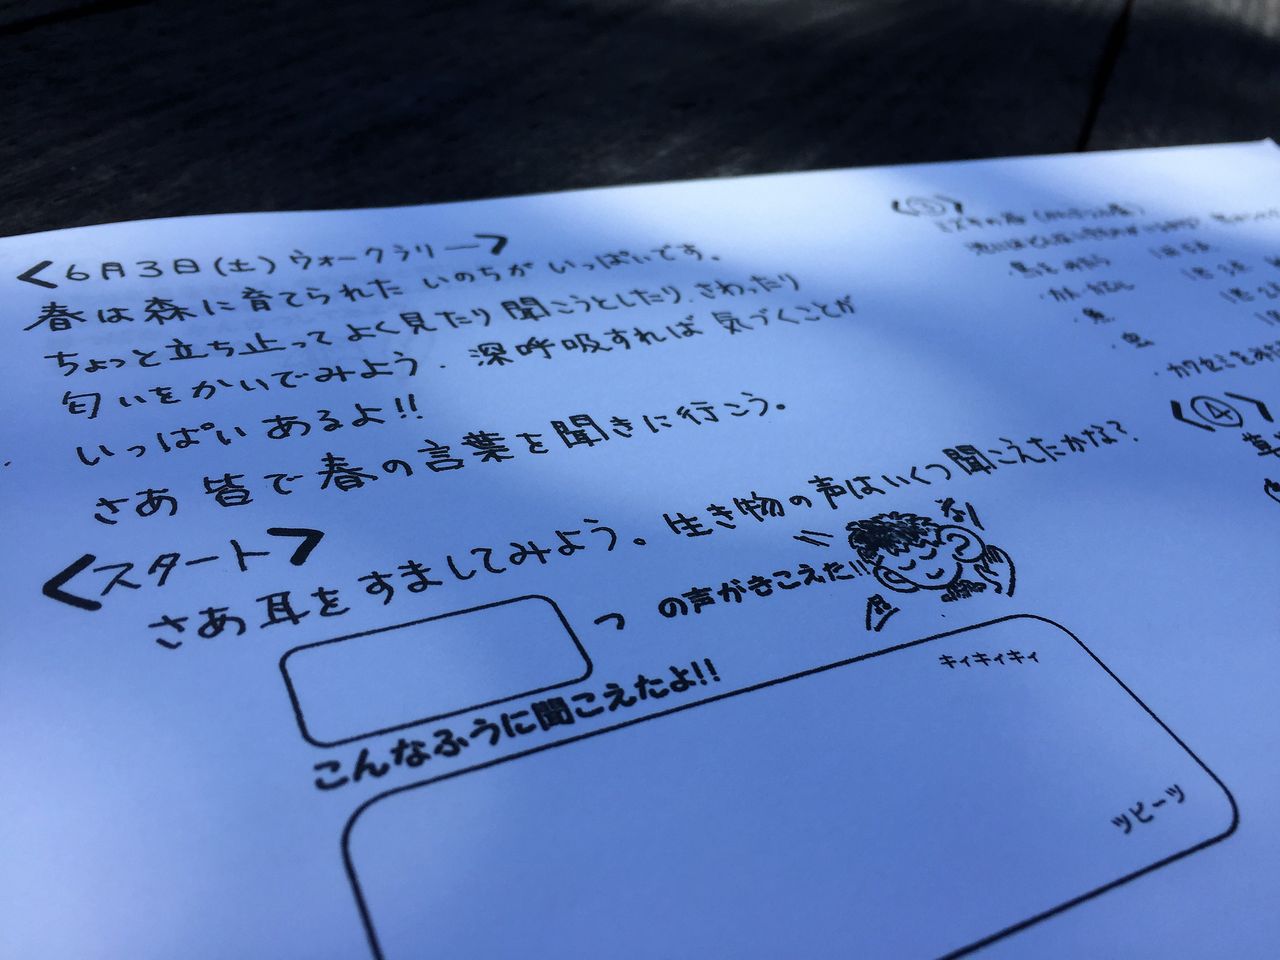 <6月3日(土)ウォークラリー>
春は森に育てられた いのちが いっぱいです。
ちょっと立ち止ってよく見たり聞こうとしたり、さわったり
匂いをかいでみよう. 深呼吸すれば 気づくことが
いっぱい あるよ!!
さあ 皆で春の言葉を聞きに行こう。
<スタート>
さあ耳をすましてみよう。生き物の声はいくつ聞こえたかな?.
つ の声がきこえた!!
こんなふうに聞こえたよ!!
キィキィキィ
ツピーツ
<③>
・鳥
・虫
<④>